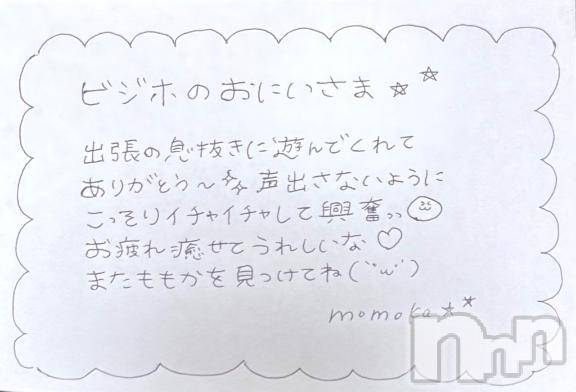 ビジホのおにいさま☆☆
出張の息抜きに遊んでくれて
ありがとう〜☆☆声出さないように
こっそりイチャイチャして興奮っっ
お疲れ癒せてうれしいな♡
またももかを見っけてね(¨ω¨)
momoka☆☆
nnn